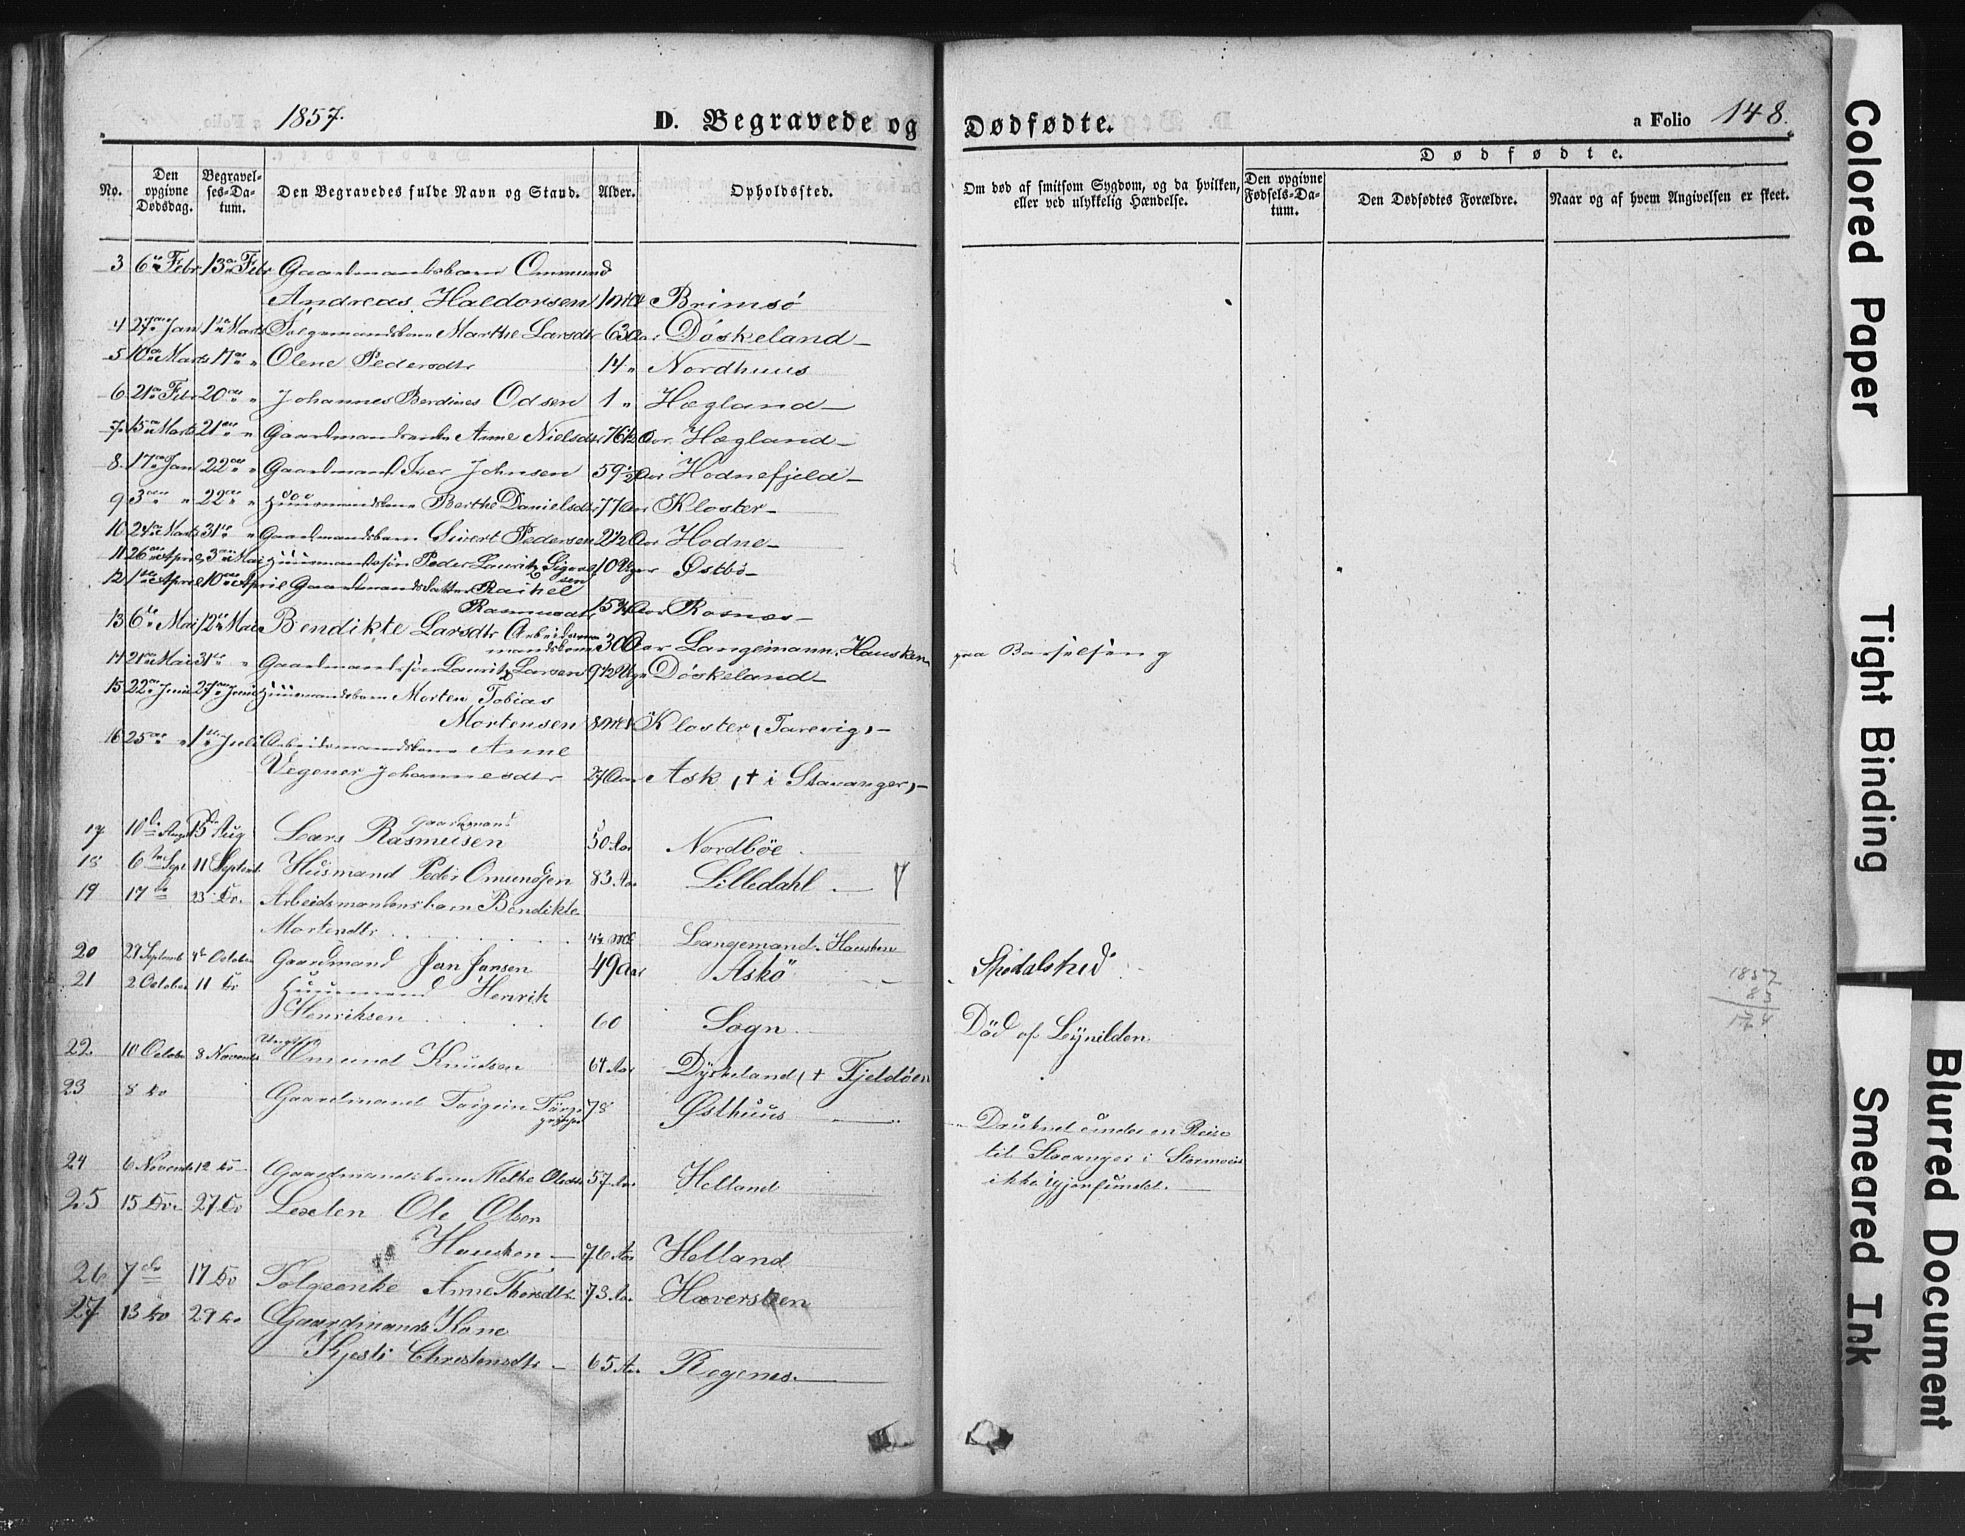 1857.
D. Begravede og Dødfødte.
a Folio 148.
No.
Den opgivne Dødsdag.
Begravelses-Datum.
Den Begravedes fulde Navn og Stand.
Alder.
Opholdssted.
Om død af smitsom Sygdom, og da hvilken, eller ved ulykkelig Hændelse.
Dødfødte.
Den opgivne Fødsels-Datum.
Den Dødfødtes Forældre.
Naar og af hvem Angivelsen er skeet.
3 6 Febr 13 Febr Gaardmandsbarn Ommund
Andreas Haldorsen Brimsø
4 27 Jan 1 Marts Marthe Larsdtr 63 Aar Døskeland
5 10 Marts 17 " Olene Pedersdtr 14 " Nordhuus
6 21 Febr 20 " Johannes Berdines Odsen 1 " Hægland
7 15 Marts 21 " Gaardmandsenke Anne Nielsdtr 76½ Aar Hægland
8 17 Jan 22 " Gaardmand Iver Johnsen 59½ Aar Hodnefjeld
9 3 " 22 " Berthe Danielsdtr 77 Aar Kloster
10 24 Marts 31 " Gaardmandsbarn Sivert Pedersen 2½ Aar Hodne
11 26 April 3 Mai Huusmandssøn Peder Lauritz Sigvalsen 10 Uger Østbø
12 1 April 10 April Gaardmandsdatter Rachel
Rasmusdtr 15¾ Aar
13 6 Mai 12 Mai Bendikte Larsdtr Arbeidsmandskone 30 Aar Langemann, Hausken paa Barselseng
14 21 Mai 31 " Gaardmandssøn Lauritz Larsen 9½ Uge Døskeland
15 22 Juni 27 Juni Huusmandsbarn Morten Tobias
Mortensen 8 Kloster (Tarevig)
16 25 " 1 Juli Arbeidsmandskone Anne
Johannesdtr 27 Aar Ask († i Stavanger)
17 10 Aug 15 Aug Gaardmand Lars Rasmusen 50 Aar Nordbøe
18 6 Sept 11 Septemb Huusmand Peder Omundsen 83 Aar Lilledahl
19 17 do 23 do Arbeidsmandsbarn Bendikte
Mortensdtr Langemand. Hausken
20 29 Septemb 4 October Gaardmand Jan Jansen 49 Aar Askö Spedalskhed
21 2 October 11 do Huusmand Henrik
Henriksen 60 Sogn Död af
22. 10 Octobr 8 Novemb Omund Knudsen 64 Aar Dyskeland († Fjeldöen)
23 8 do Gaardmand 78 Østhuus Druknet under en Reise
til Stavanger i Stormveir
ikke igjenfundet.
24 6 Novemb 12 do Gaardmandskone 57 Aar Helland
25 15 do 27 do Ole Olsen
Hausken 76 Aar Helland
26 7 do 17 do Anne Thorsdtr 73 Aar Hæversken
27 13 do 29 do Gaardmands Kone
Kjesti Christensdtr 65 Aar Regenes.
1857
83
Colored Paper
Tight Binding
Blurred Document
Smeared Ink